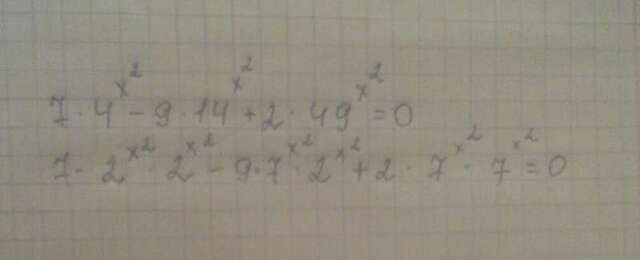 7·4^x² - 9·14^x² + 2·49^x² = 0
7·2^x²·2^x² - 9·7^x²·2^x² + 2·7^x²·7^x² = 0